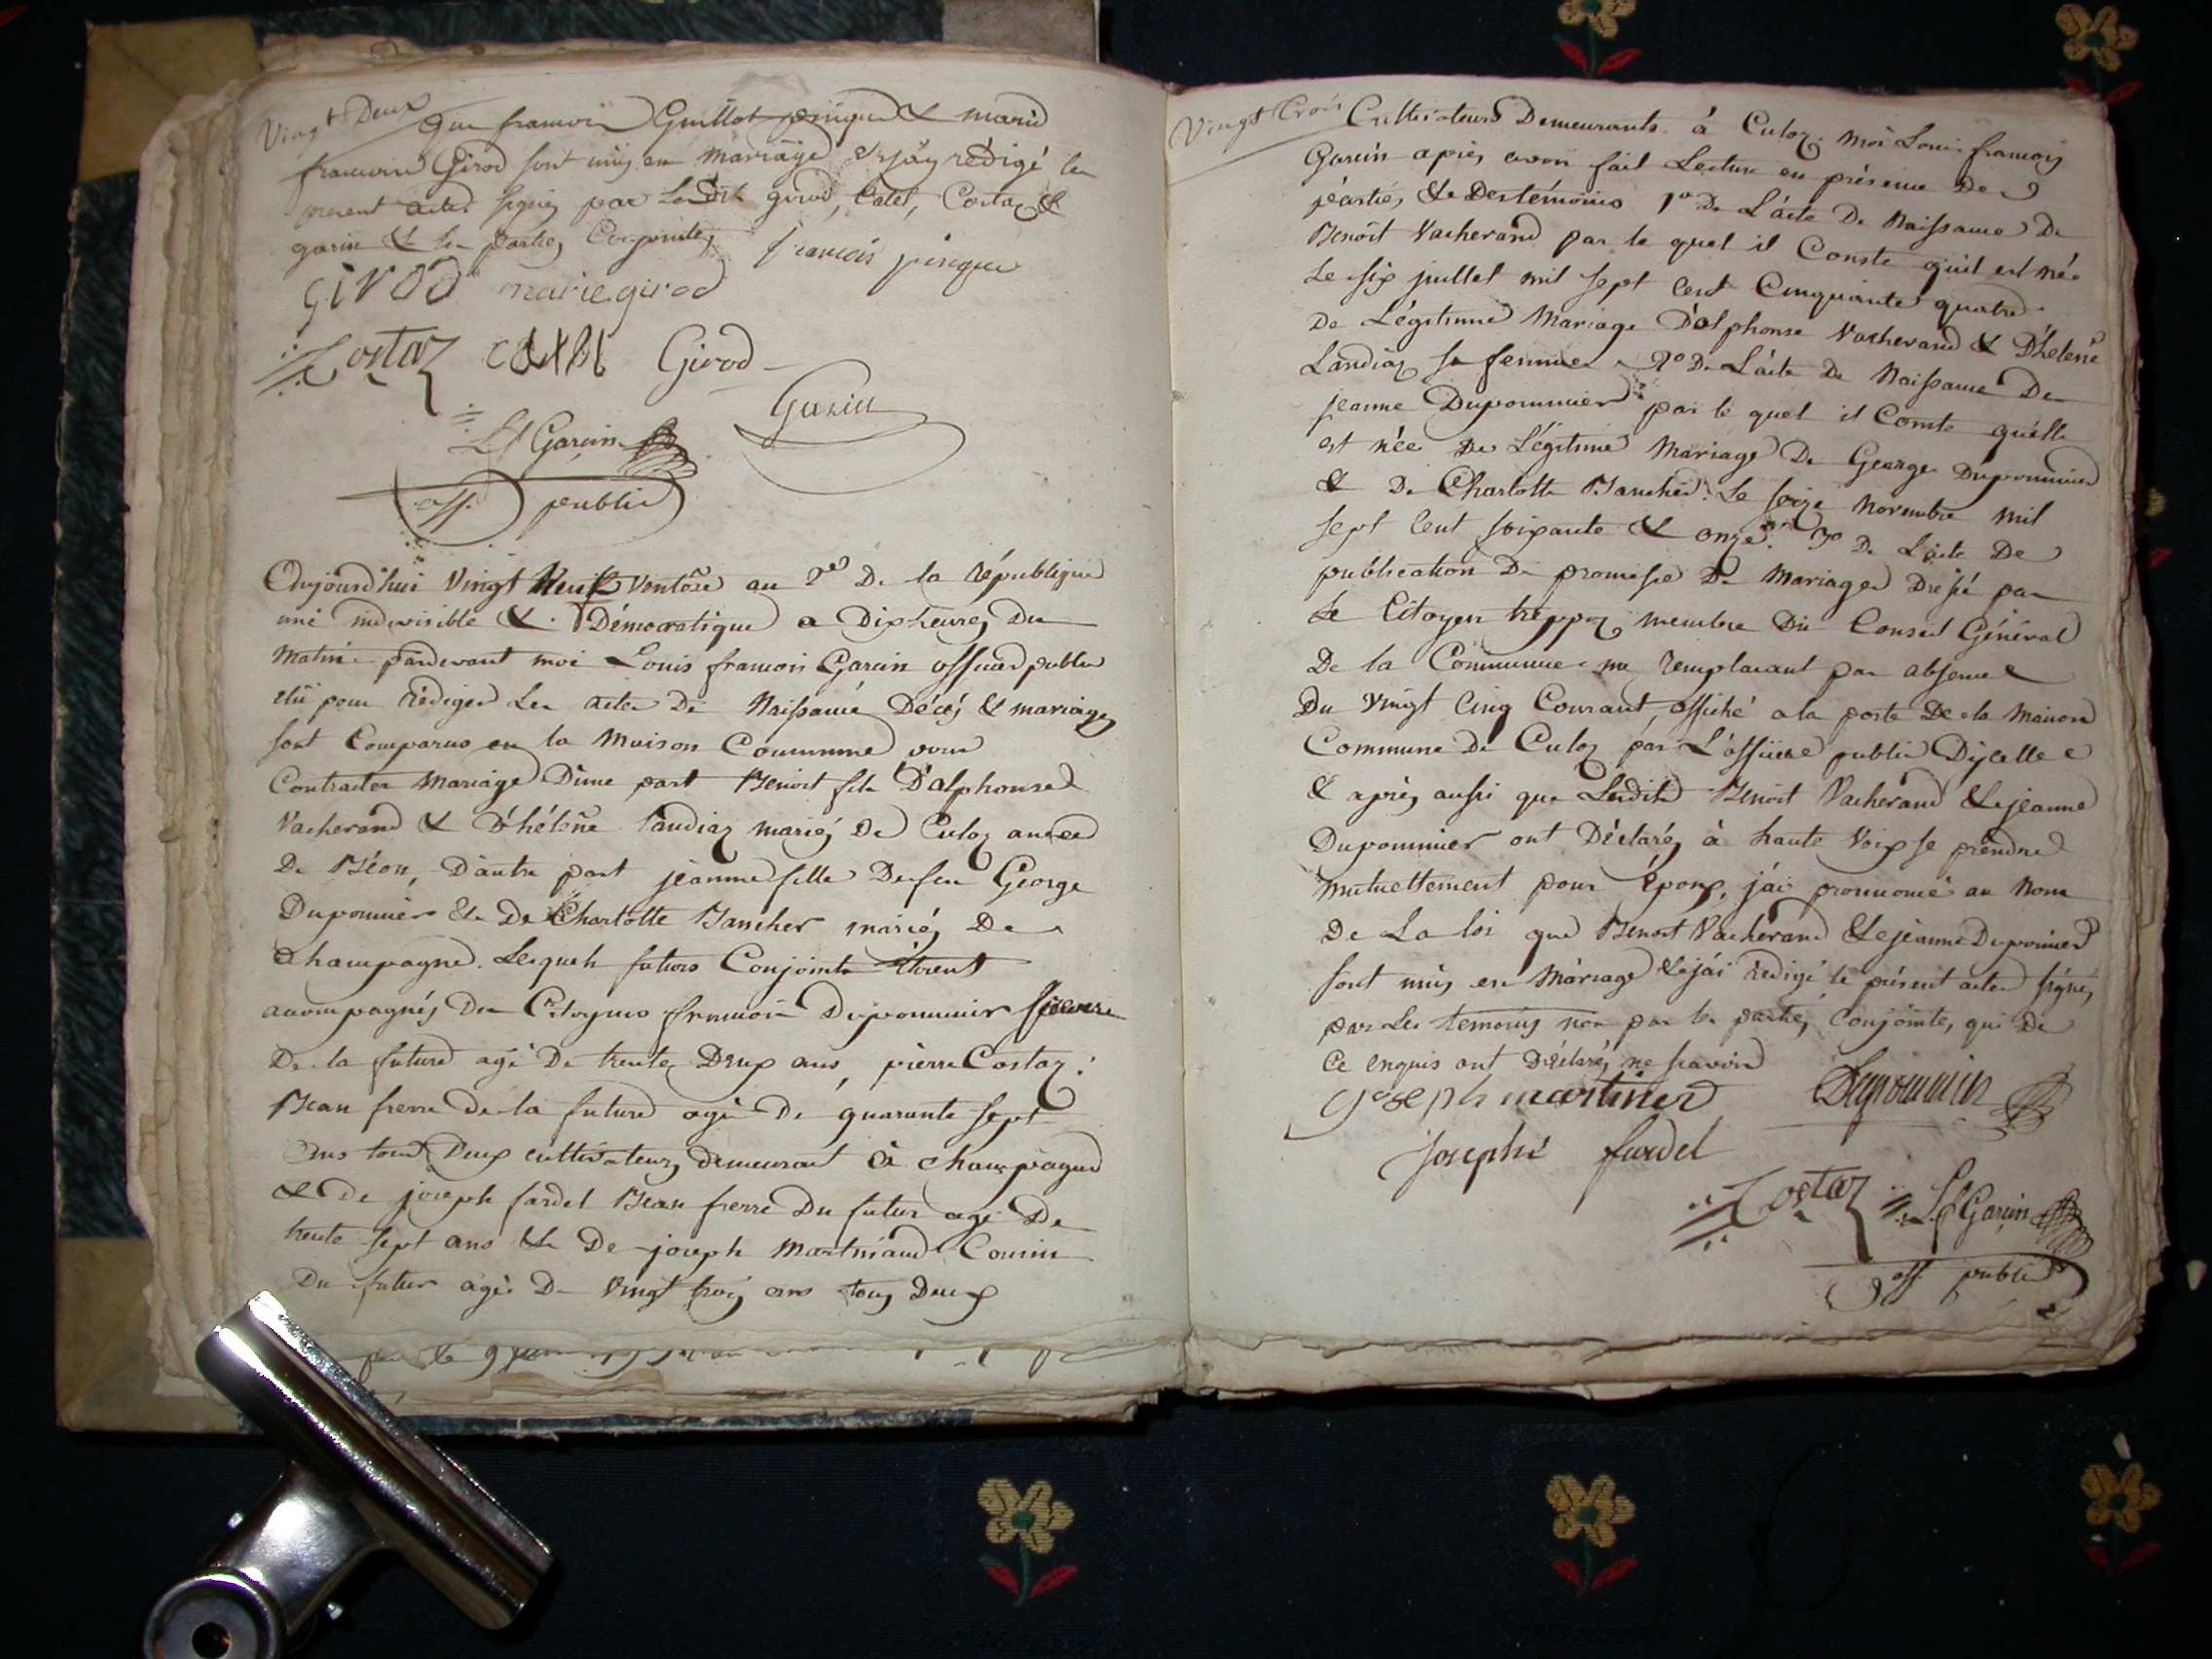 Vingt Deux
que francois Guillot pingue & marie
francoise Girod sont unis en mariage & j'ay rédigé le
present acte signés par Lesdits girod, Catel, Costaz &
garin & les parties Conjointes
francois pingue
GIROD marie girod
Costaz Girod
Garin
Lf Garin
off. public
Aujourd'hui Vingt Neuf Ventôse an 2e De la république
une indivisible & Démocratique a Dix heures Du
Matin pardevant moi Louis francois Garin officier public
élu pour rédiger Les actes De Naissance Décès & mariages
sont Comparus en la Maison Commune pour
Contracter Mariage D'une part Benoit fils D'alphonse
Vacherand & D'héléne Landiaz mariés De Culoz
De Béon, D'autre part jeanne fille De feu George
Dupommier & De Charlotte Bancher mariés De
Champagne. Lesquels futurs Conjoints étoient
accompagnés Des Citoyens francois Dupommier
De la future agé De trente Deux ans, pierre Costaz
Beau frere De la future agé De quarante sept
ans tous Deux cultivateurs demeurant à champagne
& De joseph fardel Beau frere Du futur agé De
trente sept ans & De joseph Martinaud Cousin
Du futur agé De Vingt trois ans tous Deux
Vingt Trois
Cultivateurs Demeurants à Culoz. Moi Louis francois
Garin apres avoir fait Lecture en présence Des
parties & Des témoins 1o De L'acte De Naissance De
Benoît Vacherand par le quel il Conste qu'il est né
Le six juillet mil sept Cent Cinquante quatre
De Légitime Mariage D'alphonse Vacherand & D'helene
Landiaz sa femme 2o De L'acte De Naissance De
jeanne Dupommier par le quel il Conste qu'elle
est née De Légitime Mariage De George Dupommier
& De Charlotte Bancher Le seize Novembre mil
sept Cent soixante & onze. 3o De L'acte De
publication De promesse De Mariage Dressé par
Le Citoyen treppoz membre Du Conseil Général
De la Commune me remplacant par absence
Du Vingt Cinq Courant, affiché a la porte De la Maison
Commune De Culoz par L'officier public D'icelle
& après aussi que Lesdits Benoit Vacherand & jeanne
Dupommier ont Déclarés à haute Voix se prendre
mutuellement pour Époux, j'ai prononcé au Nom
De La loi que Benoit Vacherand & jeanne Dupommier
sont unis en Mariage & j'ai rédigé le présent acte signés
par Les temoins non par les parties Conjointes, qui De
Ce enquis ont Déclarés ne scavoir
joseph martiner Dupommier
Josephe fardel
Costaz Lf Garin
off. public